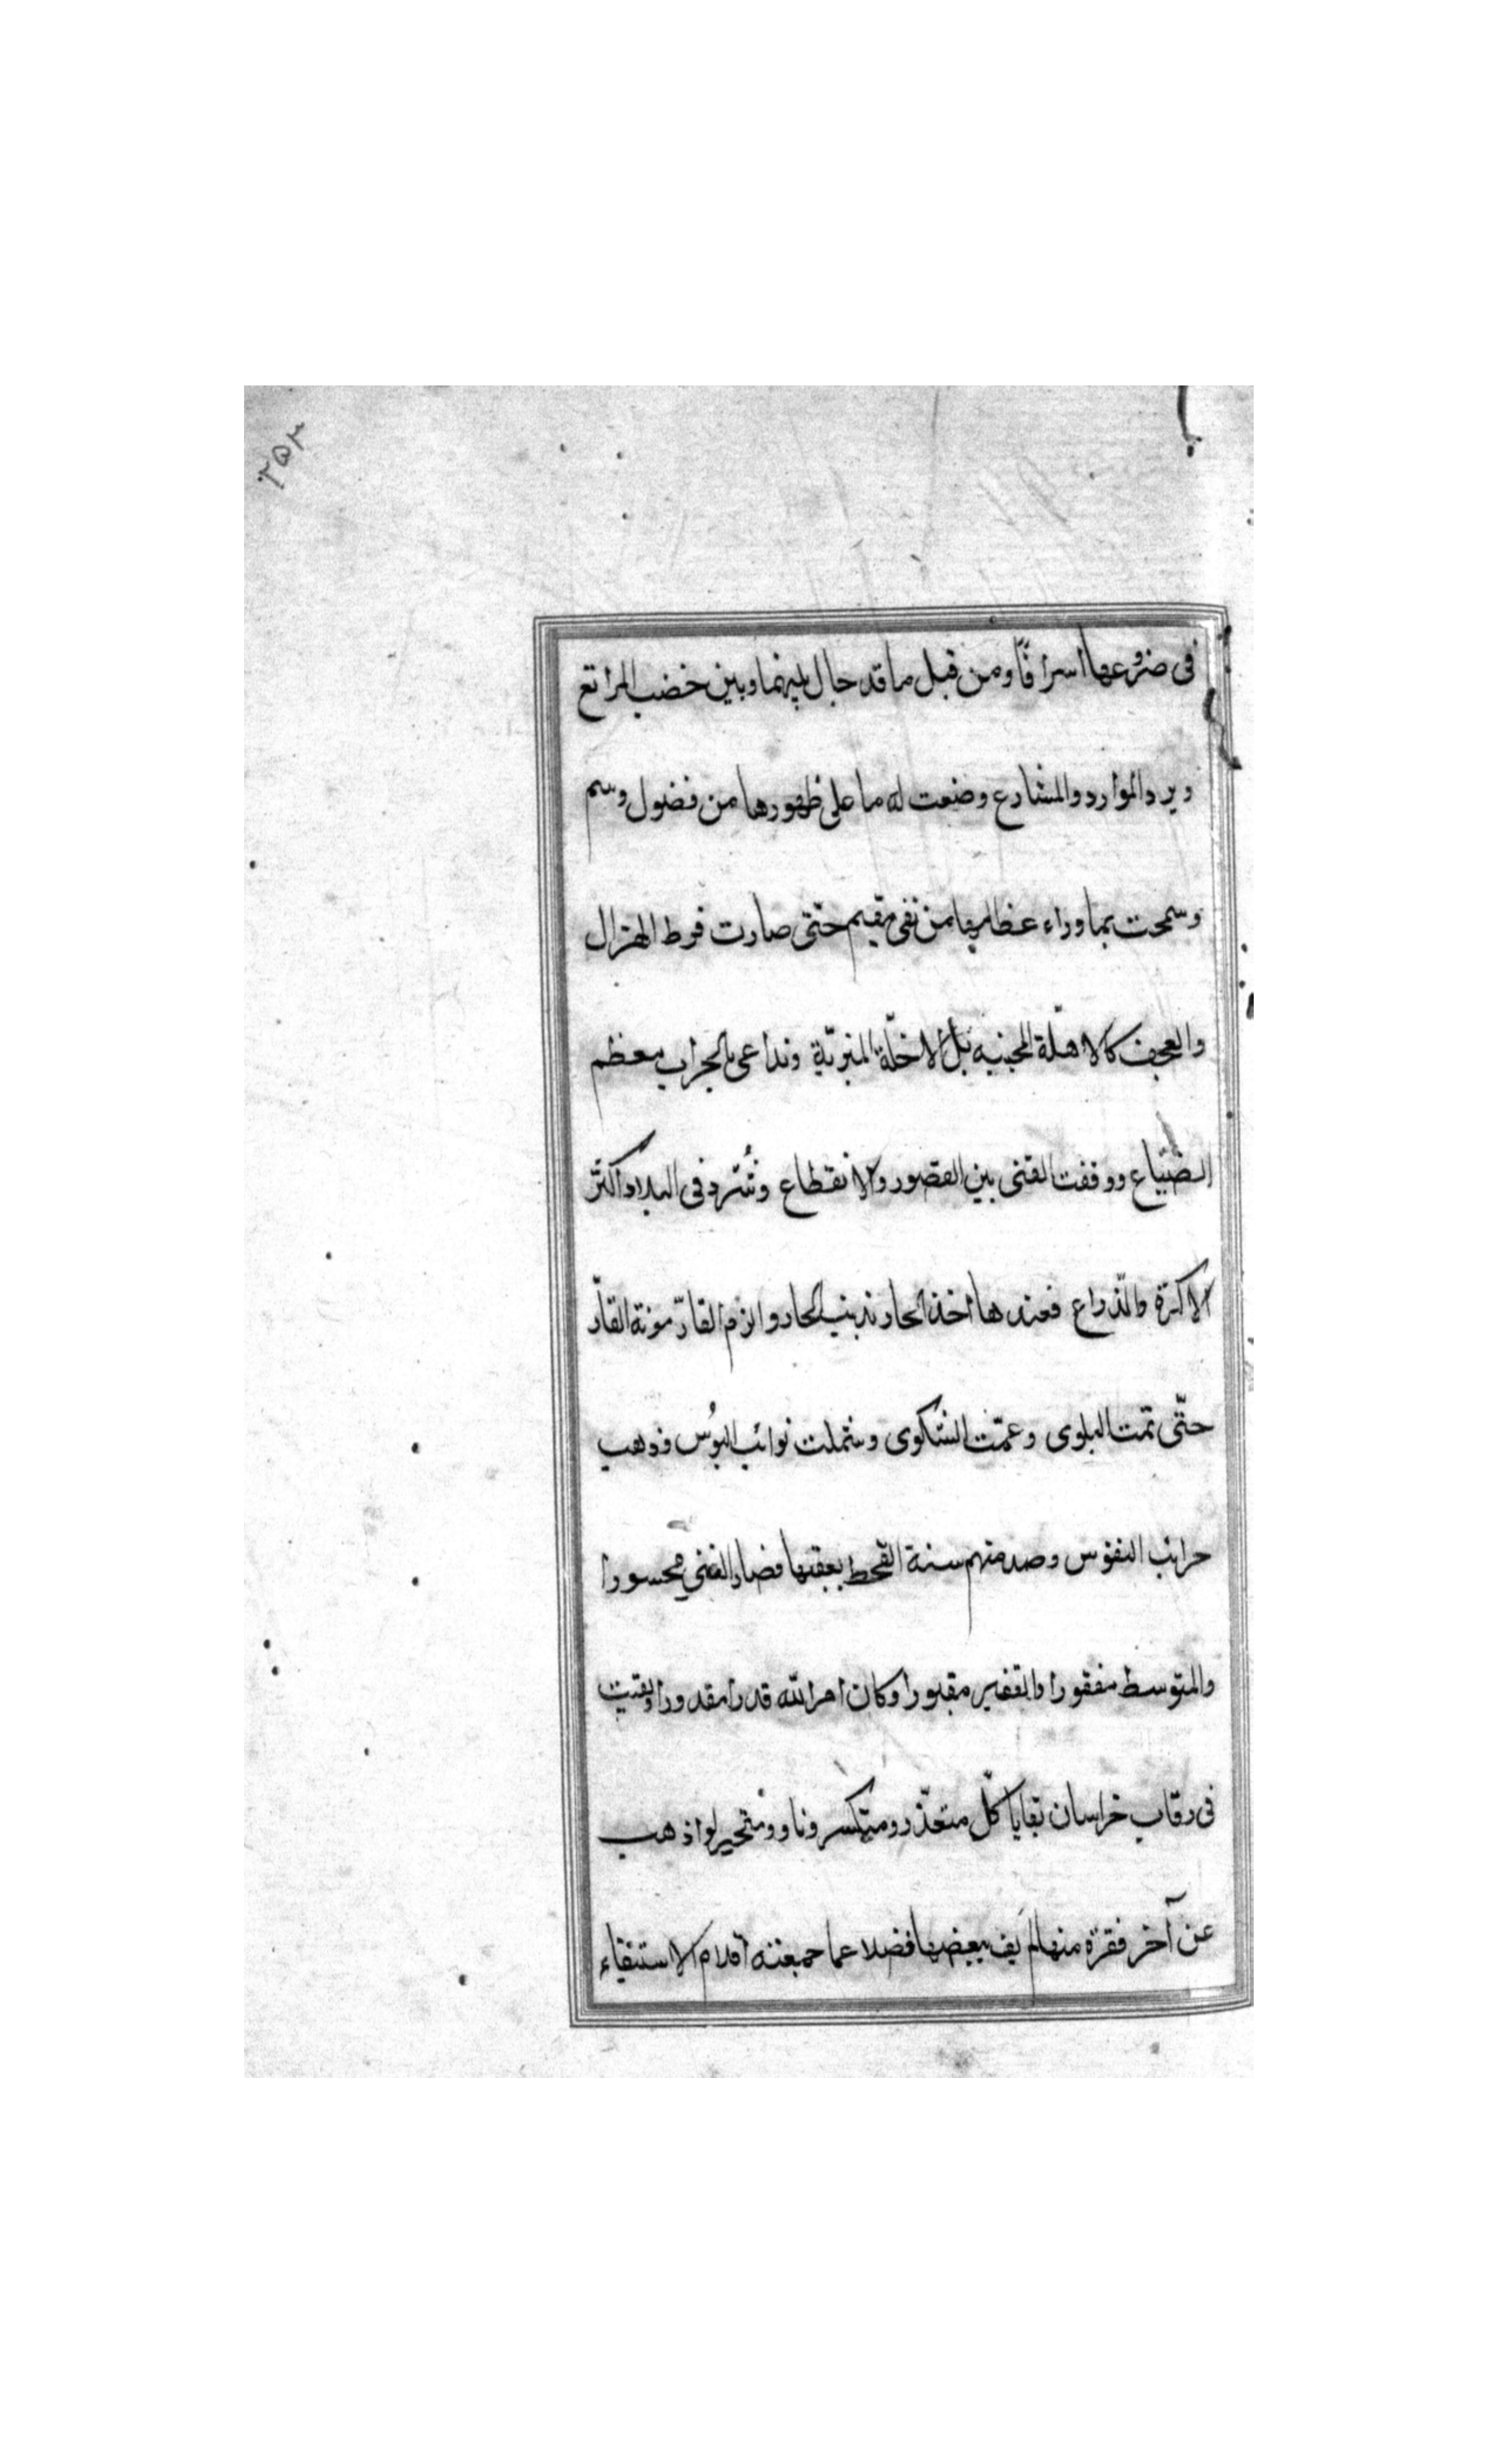 ٢٥٢
فى ضروعها اسرافًا ومن قبل ما قد حال بينهما وبين خضب المراتع
وبرد الموارد والمشارع وضعت له ما على ظهورها من فضول وسم
وسمحت بما وراء عظامها من نقى مقيم حتّى صارت فرط الهزال
والعجف كالاهلّة المحنيه بل الاخلّة المنبريّة وتداعى بالخراب معظم
الضيّاع ووقفت القنى بين القصور والانقطاع وتُشرد فى البلاد اكثر
الاكرة والذراع فعندها اخذ الجار بذنب الجار والزم القارّ مونة الفارّ
حتّى تمت البلوى وعمّت الشكوى وشملت نوائب البُوس وذهب
حرائب النفوس وصدمتهم سنة القحط بعقبها فصار الغنى محسورا
والمتوسط مفقورا والفقير مقبورا وكان امر الله قدرا مقدورا وبقيت
فى رقاب خراسان بقايا كلّ متعذّر ومتكسر وناو ومتحير لو اذهب
عن آخر فقرة منها لم يف ببعضها فضلا عما جمعته اقلام الاستيفاء